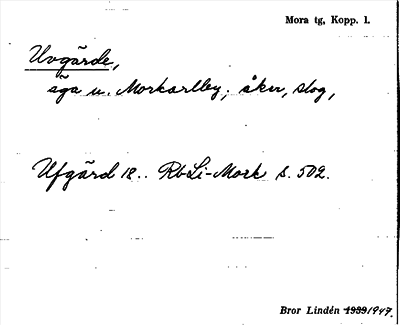 Mora tg, Kopp. l.
Uvgärde,
äga u. Morkarlby; åker, skog,
Ufgärd 18.. RbLi-Mork s. 502.
Bror Lindén 1939/1947.